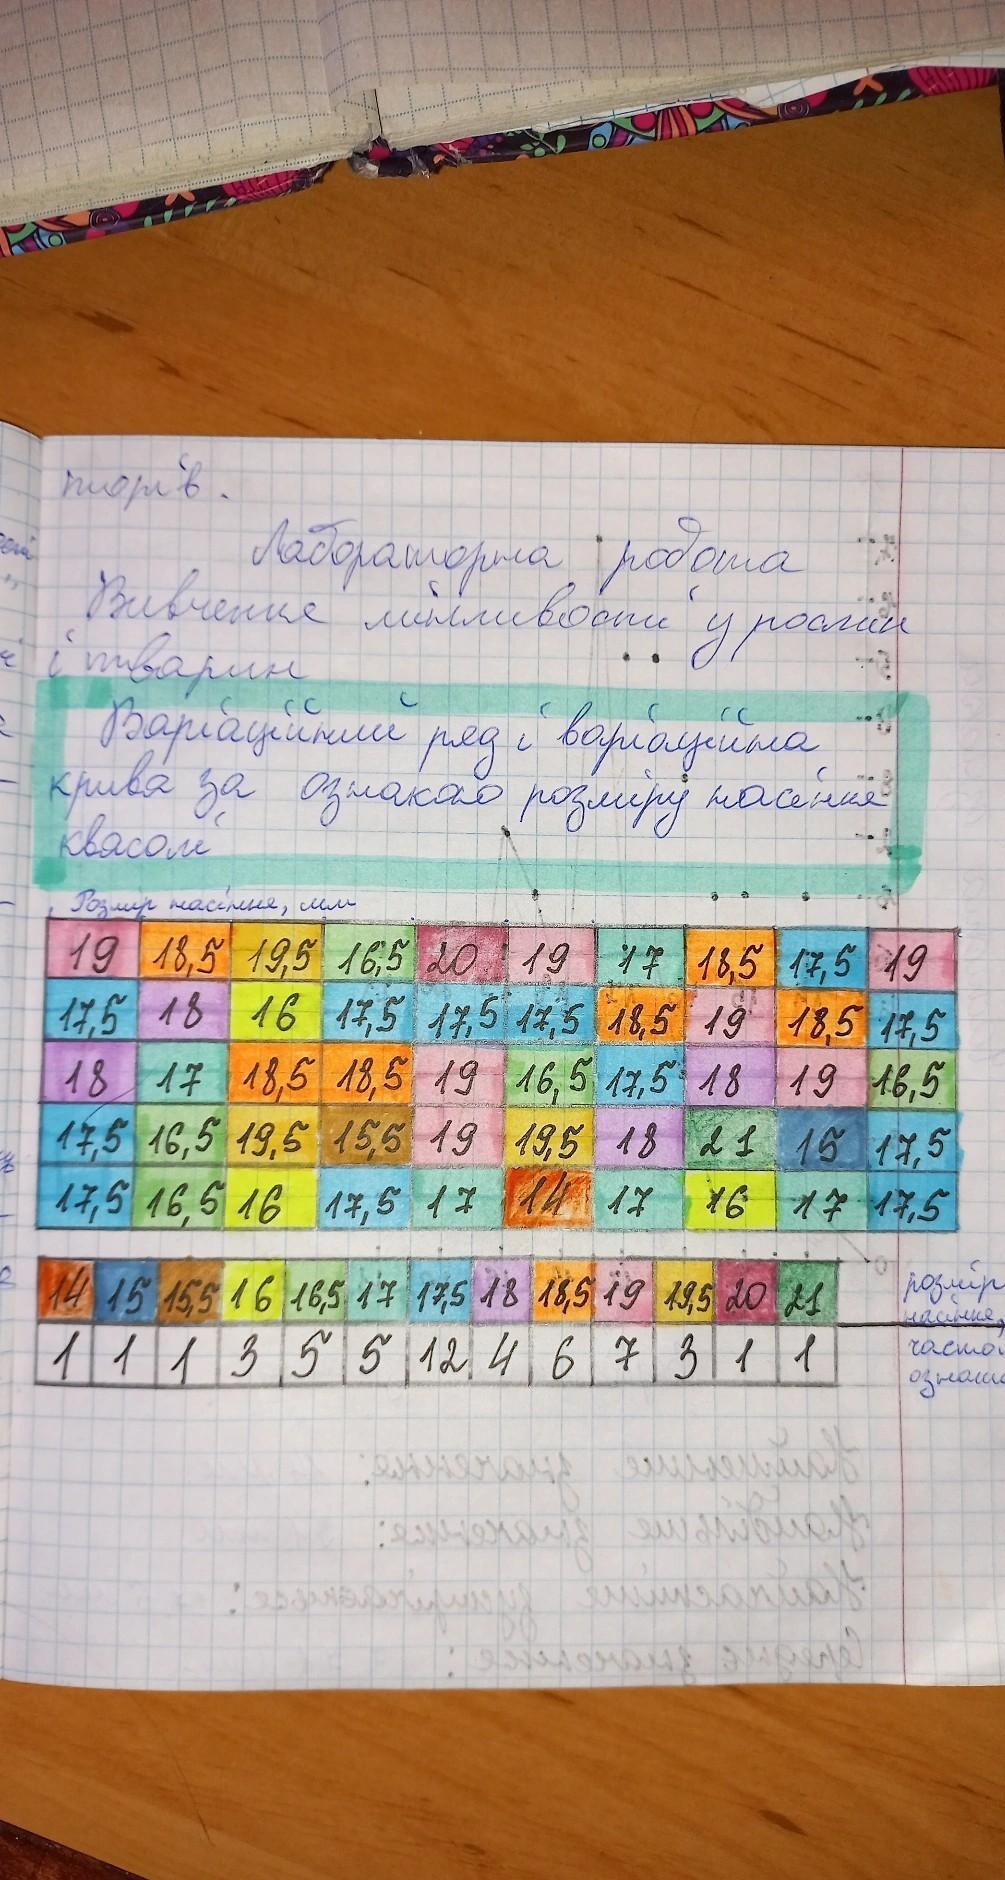 Лабораторна робота
Вивчення мінливості у рослин
і тварин
Варіаційний ряд і варіаційна
крива за ознакою розміру насіння
квасолі
Розмір насіння, мм
19 18,5 19,5 16,5 20 19 17 18,5 17,5 19
17,5 18 16 17,5 17,5 17,5 18,5 19 18,5 17,5
18 17 18,5 18,5 19 16,5 17,5 18 19 16,5
17,5 16,5 19,5 15,5 19 19,5 18 21 15 17,5
17,5 16,5 16 17,5 17 14 17 16 17 17,5
14 15 15,5 16 16,5 17 17,5 18 18,5 19 19,5 20 21 розмір
насіння,
1 1 1 3 5 5 12 4 6 7 3 1 1
Найменше значення:
Найбільше значення:
Найчастіше зустрічається:
Середнє значення: